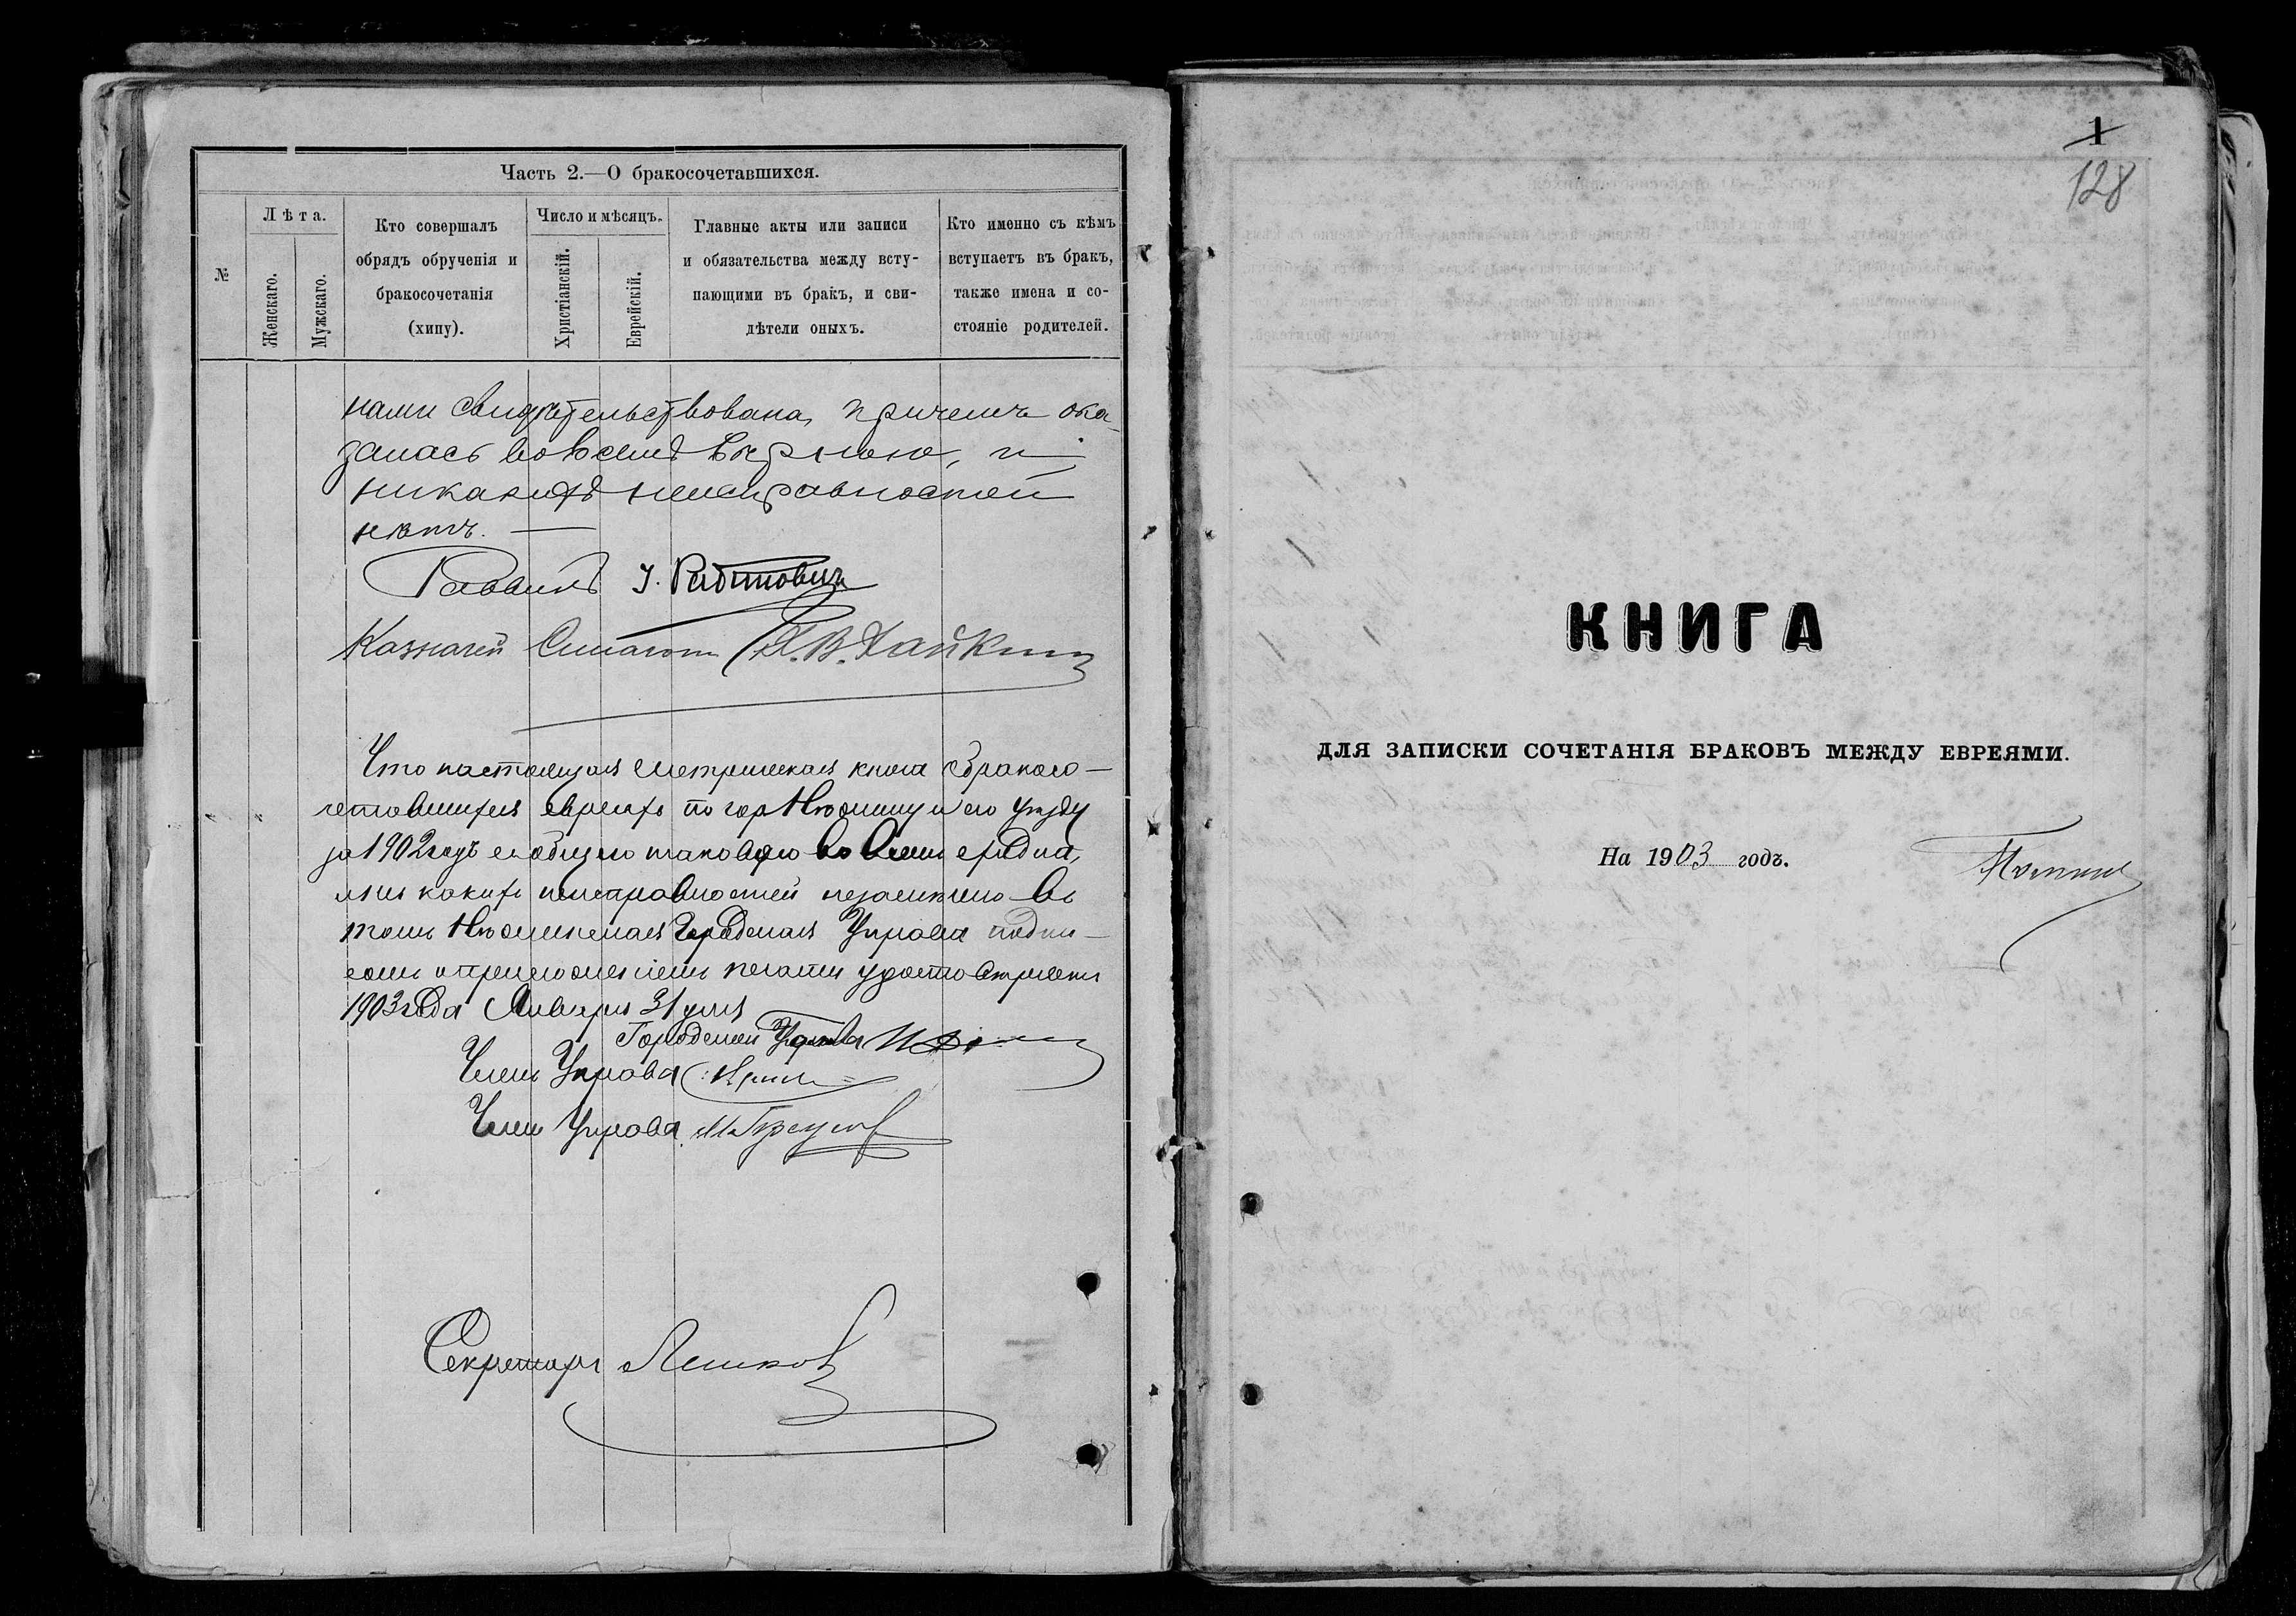 Часть 2.—О бракосочетавшихся.
№
Лѣта.
Женскаго.
Мужскаго.
Кто совершалъ
обрядъ обрученія и
бракосочетанія
(хипу).
Число и мѣсяцъ.
Христіанскій.
Еврейскій.
Главные акты или записи
и обязательства между всту-
пающими въ бракъ, и сви-
дѣтели оныхъ.
Кто именно съ кѣмъ
вступаетъ въ бракъ,
также имена и со-
стояніе родителей.
нами свидѣтельствована, причемъ ока-
залась во всемъ вѣрною, и
никакихъ неисправностей
нѣтъ. —
Раввинъ
Казначей Синагоги
Что настоящая метрическая книга о бракосо-
четавшихся евреяхъ по гор. Нѣжину и его уѣзду
за 1902 годъ во всемъ сходна,
неисправностей незамѣчено въ
томъ Нѣжинская Городская Управа подпи-
сомъ и приложеніемъ печати удостовѣряетъ
1903 года Января 31 дня
Городской
Членъ Управы
Членъ Управы
Секретарь
1
128
КНИГА
ДЛЯ ЗАПИСКИ СОЧЕТАНІЯ БРАКОВЪ МЕЖДУ ЕВРЕЯМИ.
На 1903 годъ.